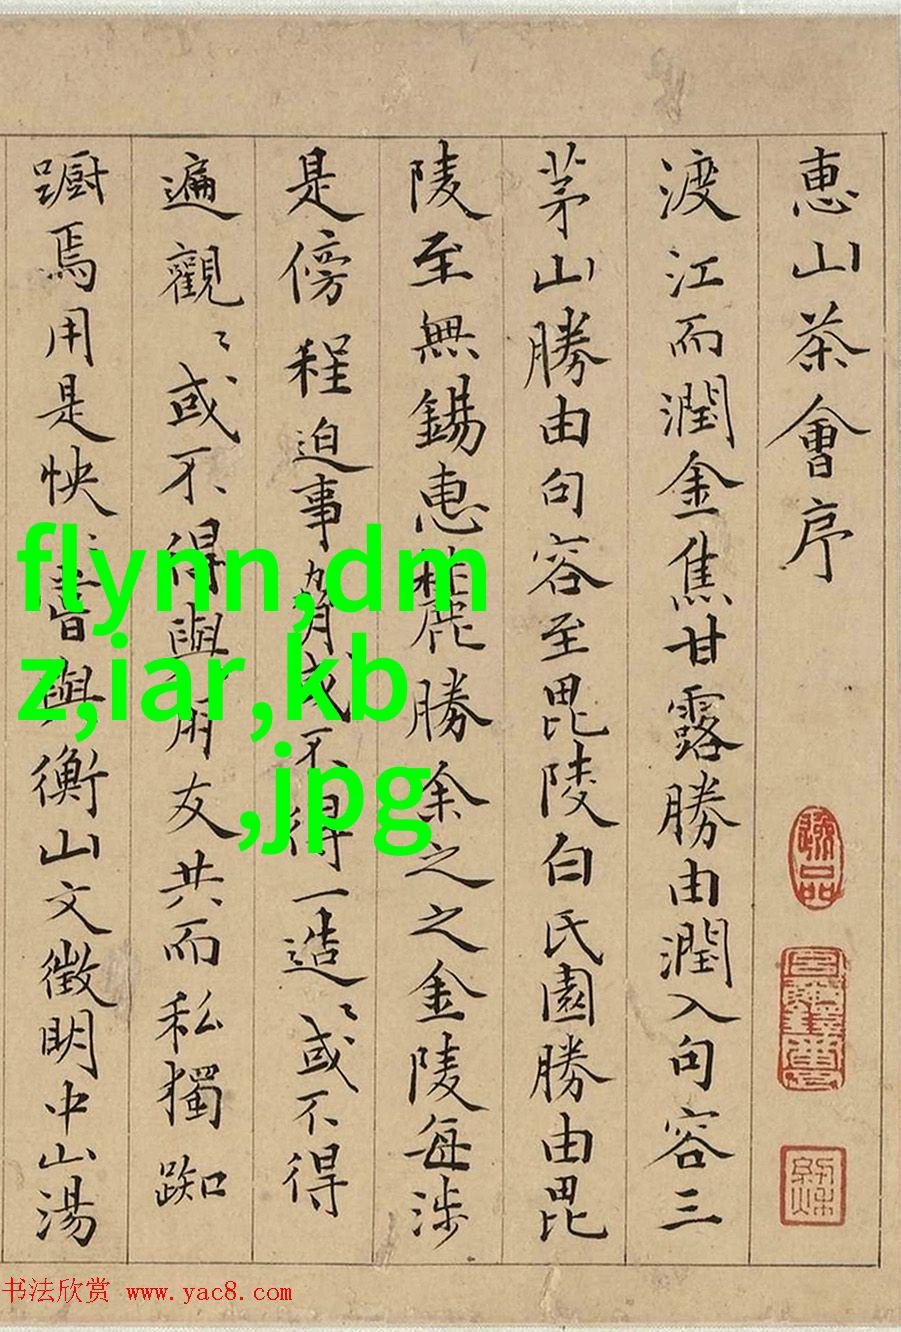 惠山茶會序
渡江而潤金焦甘露勝由潤入句容三
茅山勝由句容至毘陵白氏園勝由毘
陵至無錫惠麓勝余之之金陵每涉
是傍程迫事或不得一造〻或不得
遍觀〻或不得與朋友共而私獨踟
蹰焉用是怏〻嘗與衡山文徵明中山湯
flynn,dm
z,iar,kb
,jpg
书法欣赏 www.yac8.com